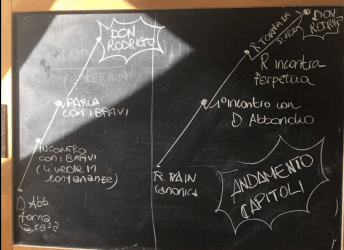 DON
RODRIGO
PARLA
CON I BRAVI
INCONTRO
CON I BRAVI
(li vede in
lontananza)
D. Abb
torna
a casa
DON
RODRIGO
R. TORNA DA
R incontra
Perpetua
1° incontro con
D Abbondio
R. RAIN
canonica
ANDAMENTO
CAPITOLI